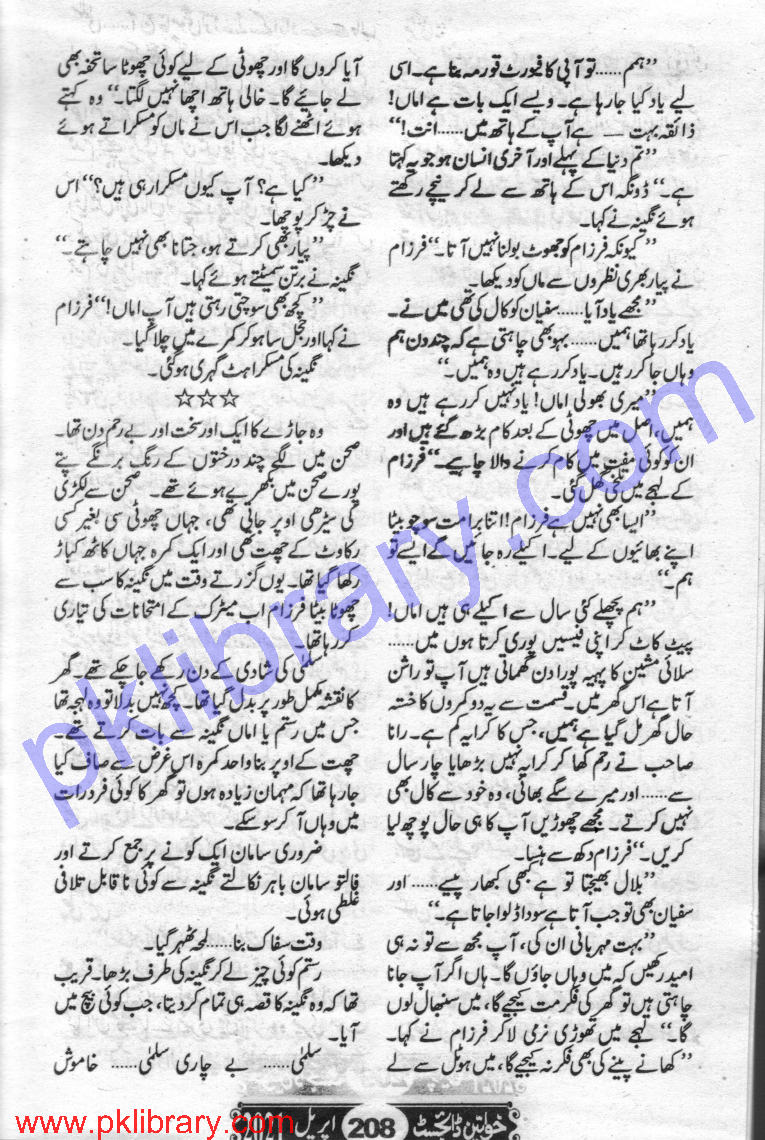 ”ہم...... تو آپی کا فیورٹ قورمہ بنا ہے۔ اسی
لیے یاد کیا جا رہا ہے۔ ویسے ایک بات ہے اماں!
ذائقہ بہت — ہے آپ کے ہاتھ میں...... انت!“
”تم دنیا کے پہلے اور آخری انسان ہو جو یہ کہتا
ہے۔“ ڈونگہ اس کے ہاتھ سے لے کر نیچے رکھتے
ہوئے نگینہ نے کہا۔
”کیونکہ فرزام کو جھوٹ بولنا نہیں آتا۔“ فرزام
نے پیار بھری نظروں سے ماں کو دیکھا۔
”مجھے یاد آیا...... سفیان کو کال کی تھی میں نے۔
یاد کر رہا تھا ہمیں...... بہو بھی چاہتی ہے کہ چند دن ہم
وہاں جا کر رہیں۔ یاد کر رہے ہیں وہ ہمیں۔“
”میری بھولی اماں! یاد نہیں کر رہے ہیں وہ
ہمیں، اصل میں چھوٹی کے بعد کام بڑھ گئے ہیں اور
ان کو کوئی مفت میں کام کرنے والا چاہیے۔“ فرزام
کے لہجے میں تلخی گھل گئی۔
”ایسا بھی نہیں ہے فرزام! اتنا برا مت سوچو بیٹا
اپنے بھائیوں کے لیے۔ اکیلے رہ جائیں گے ایسے تو
ہم۔“
”ہم پچھلے کئی سال سے اکیلے ہی ہیں اماں!
پیٹ کاٹ کر اپنی فیسیں پوری کرتا ہوں میں......
سلائی مشین کا پہیہ پورا دن گھماتی ہیں آپ تو راشن
آتا ہے اس گھر میں۔ قسمت سے یہ دو کمروں کا خستہ
حال گھر مل گیا ہے ہمیں، جس کا کرایہ کم ہے۔ رانا
صاحب نے رحم کھا کر کرایہ نہیں بڑھایا چار سال
سے...... اور میرے سگے بھائی، وہ خود سے کال بھی
نہیں کرتے۔ مجھے چھوڑیں آپ کا ہی حال پوچھ لیا
کریں۔“ فرزام دکھ سے ہنسا۔
”بلال بھیجتا تو ہے کبھی کبھار پیسے...... اور
سفیان بھی تو جب آتا ہے سودا ڈلوا جاتا ہے۔“
”بہت مہربانی ان کی، آپ مجھ سے تو نہ ہی
امید رکھیں کہ میں وہاں جاؤں گا۔ ہاں اگر آپ جانا
چاہتی ہیں تو گھر کی فکر مت کیجیے گا، میں سنبھال لوں
گا۔“ لہجے میں تھوڑی نرمی لا کر فرزام نے کہا۔
”کھانے پینے کی بھی فکر نہ کیجیے گا، میں ہوٹل سے لے
آیا کروں گا اور چھوٹی کے لیے کوئی چھوٹا سا تحفہ بھی
لے جائیے گا۔ خالی ہاتھ اچھا نہیں لگتا۔“ وہ کہتے
ہوئے اٹھنے لگا جب اس نے ماں کو مسکراتے ہوئے
دیکھا۔
”کیا ہے؟ آپ کیوں مسکرا رہی ہیں؟“ اس
نے چڑ کر پوچھا۔
”پیار بھی کرتے ہو، جتانا بھی نہیں چاہتے۔“
نگینہ نے برتن سمیٹتے ہوئے کہا۔
”کچھ بھی سوچتی رہتی ہیں آپ اماں!“ فرزام
نے کہا اور خجل سا ہو کر کمرے میں چلا گیا۔
نگینہ کی مسکراہٹ گہری ہو گئی۔
☆☆☆
وہ جاڑے کا ایک اور سخت اور بے رحم دن تھا۔
صحن میں لگے چند درختوں کے رنگ برنگے پتے
پورے صحن میں بکھرے ہوئے تھے۔ صحن سے لکڑی
کی سیڑھی اوپر جاتی تھی، جہاں چھوٹی سی بغیر کسی
رکاوٹ کے چھت تھی اور ایک کمرہ جہاں کاٹھ کباڑ
رکھا گیا تھا۔ یوں گزرتے وقت میں نگینہ کا سب سے
چھوٹا بیٹا فرزام اب میٹرک کے امتحانات کی تیاری
کر رہا تھا۔
سلمیٰ کی شادی کے دن رکھے جا چکے تھے۔ گھر
کا نقشہ مکمل طور پر بدل گیا تھا۔ کچھ نہیں بدلا تو وہ لہجہ تھا
جس میں رستم یا اماں نگینہ سے بات کرتے تھے۔
چھت کے اوپر بنا واحد کمرہ اس غرض سے صاف کیا
جا رہا تھا کہ مہمان زیادہ ہوں تو گھر کا کوئی فرد رات
میں وہاں آ کر سو سکے۔
ضروری سامان ایک کونے پر جمع کرتے اور
فالتو سامان باہر نکالتے نگینہ سے کوئی ناقابل تلافی
غلطی ہوئی۔
وقت سفاک بنا...... لمحہ ٹھہر گیا۔
رستم کوئی چیز لے کر نگینہ کی طرف بڑھا۔ قریب
تھا کہ وہ نگینہ کا قصہ ہی تمام کر دیتا، جب کوئی بیچ میں
آیا۔
سلمیٰ...... بے چاری سلمیٰ...... خاموش
خواتین ڈائجسٹ 208 اپریل 2021
pklibrary.com
www.pklibrary.com